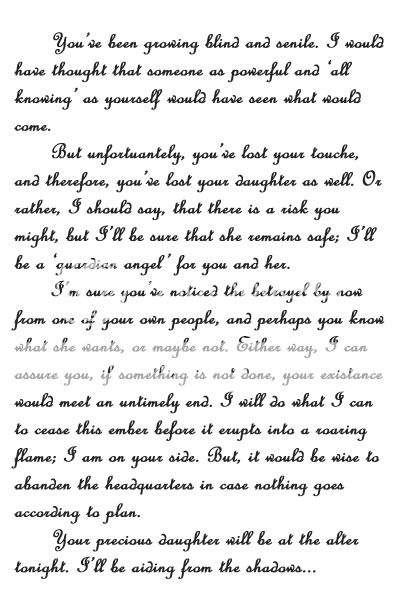 You've been growing blind and senile. I would
have thought that someone as powerful and 'all
knowing' as yourself would have seen what would
come.
But unfortuantely, you've lost your touche,
and therefore, you've lost your daughter as well. Or
rather, I should say, that there is a risk you
might, but I'll be sure that she remains safe; I'll
be a 'guardian angel' for you and her.
I'm sure you've noticed the betrayel by now
from one of your own people, and perhaps you know
what she wants, or maybe not. Either way, I can
assure you, if something is not done, your existance
would meet an untimely end. I will do what I can
to cease this ember before it erupts into a roaring
flame; I am on your side. But, it would be wise to
abanden the headquarters in case nothing goes
according to plan.
Your precious daughter will be at the alter
tonight. I'll be aiding from the shadows...